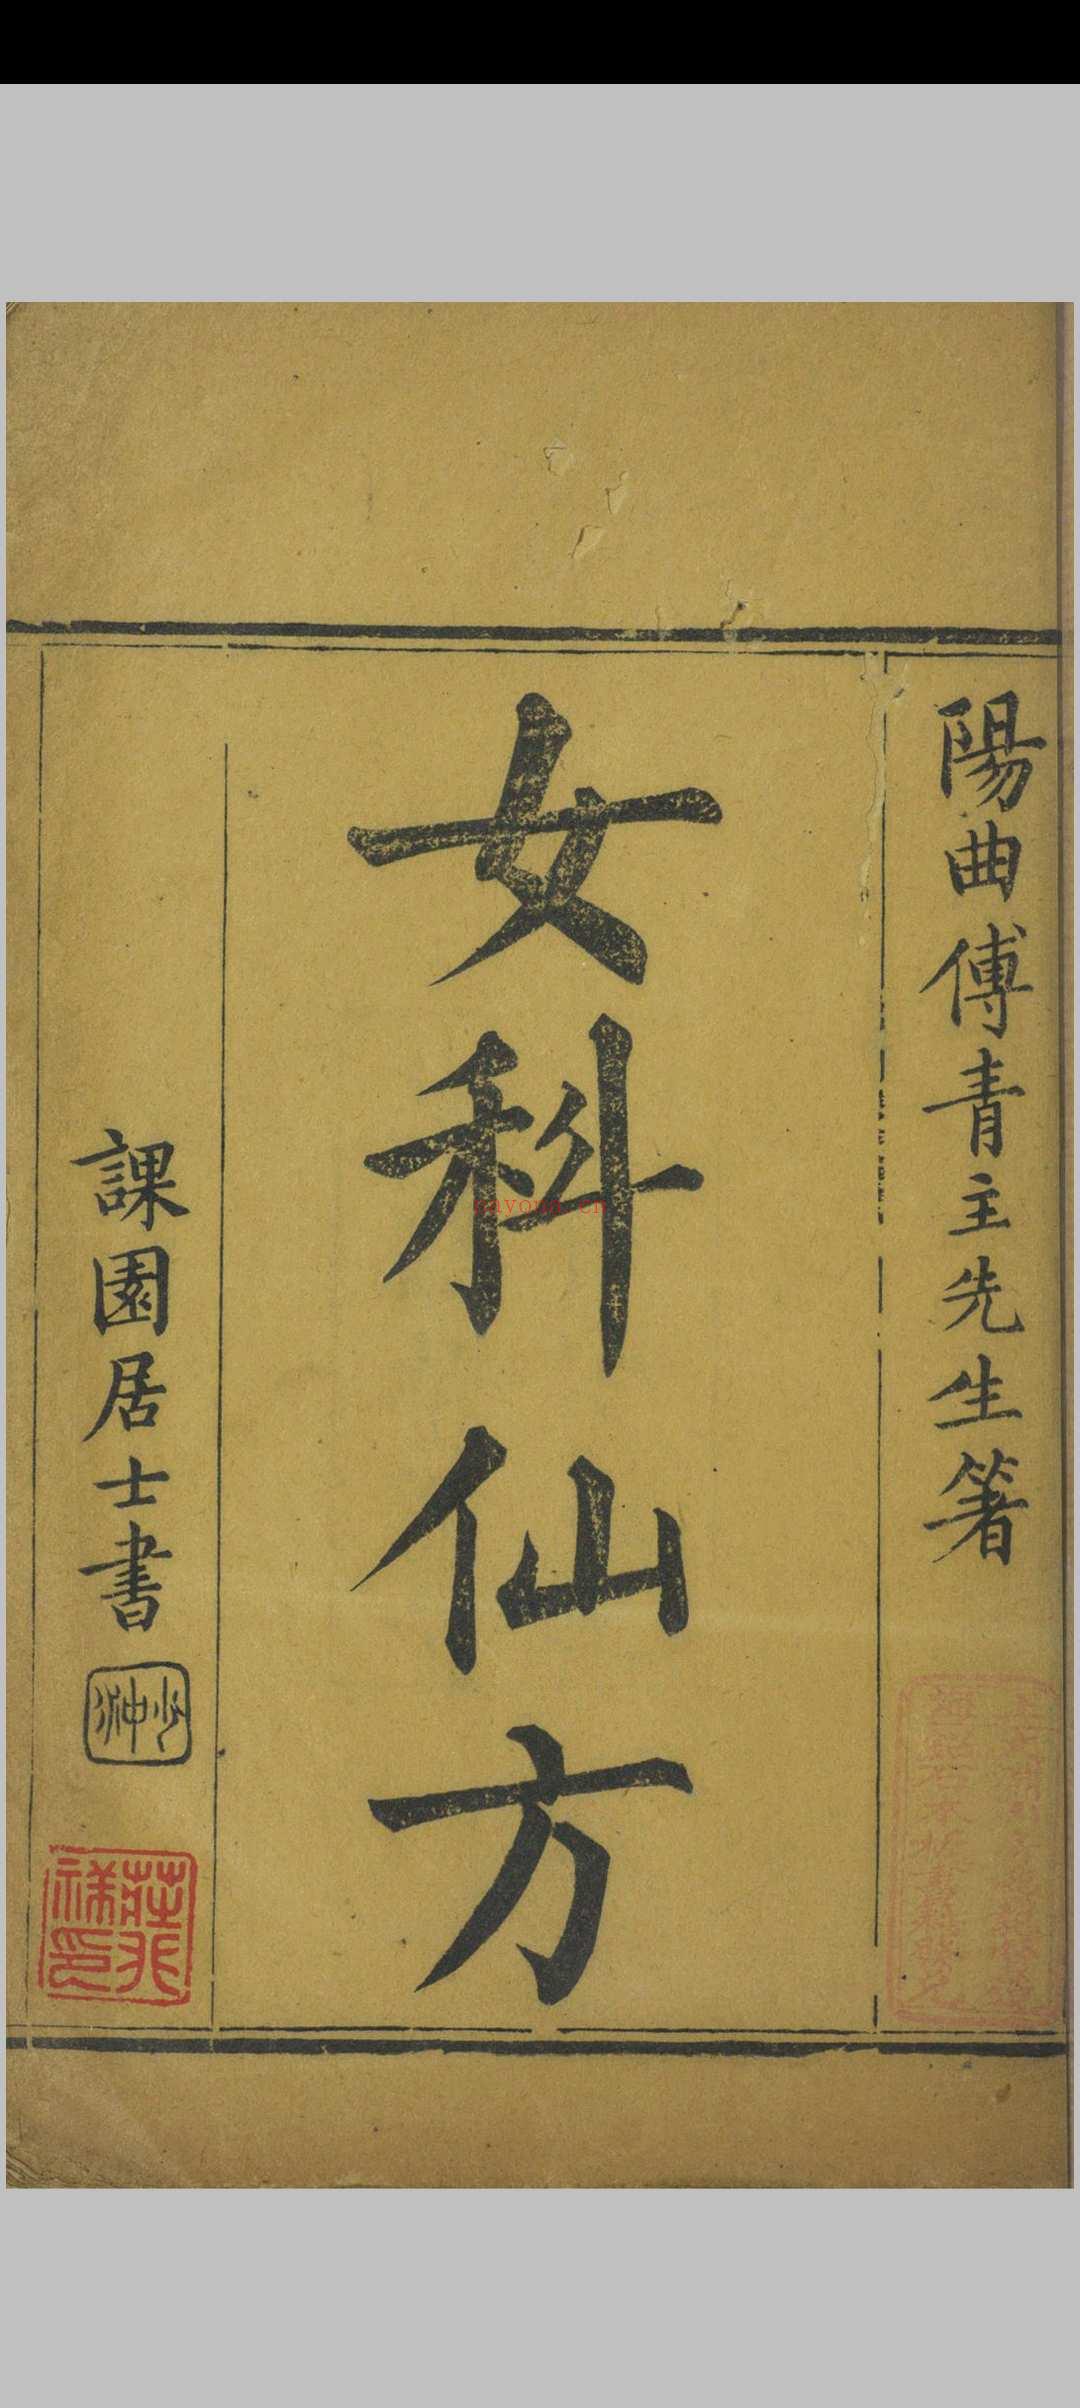 陽曲傅青主先生箸
女科仙方
課園居士書
少沖
nayona.cn